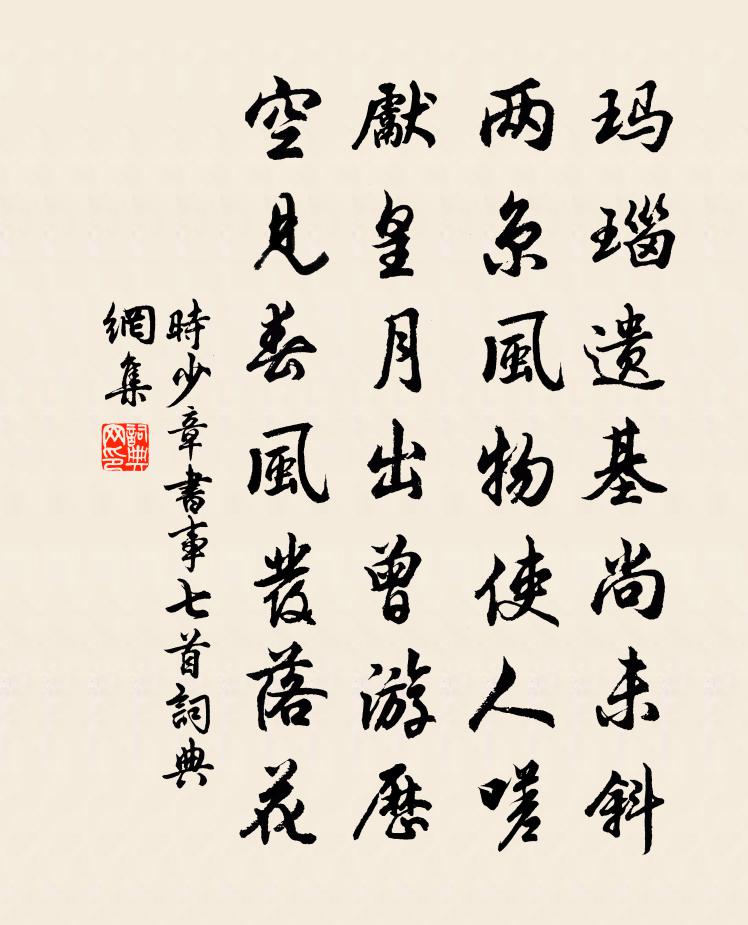 玛瑙遗基尚未斜
两京風物使人嗟
獻皇月出曾游歷
空見春風發落花
時少章書事七首詞典
網集
詞典
网印